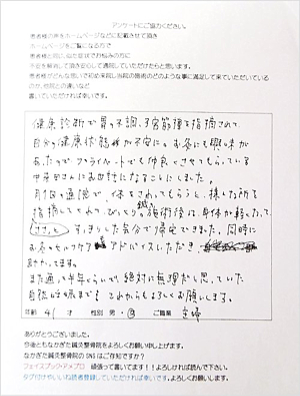 アンケートにご協力ください。
患者様の声をホームページなどに記載させて頂き
ホームページをご覧になる方で
患者様と同じ似た症状でお悩みの方に
不安を解消して頂き安心して通院していただけたらと思います。
患者様がどんな思いで初め来院し当院の施術のどのような事に満足して来ていただいている
のか、他院との違いなど
書いていただければ幸いです。
健康診断で胃の不調、子宮筋腫を指摘されて、
自分の健康状態が不安に。お灸にも興味が
あったのでプライベートでも仲良くさせてもらっている
中先生にお世話になることにしました。
月1回の通院で、体をさわってもらうと、様々な所を
指摘してくれて、びっくり。鍼施術後は、身体が軽くなって
すっきりした気分で帰宅できました。同時に
お灸のセルフケア アドバイスいただき、
助かってます。
また通って半年くらいで、絶対に無理だと思っていた
これからもよろしくお願いします。
年齢 41 才 性別 男・女 ご職業 主婦
ありがとうございました。
今後ともなかがき鍼灸整骨院をよろしくお願い申し上げます。
なかがき鍼灸整骨院の SNS はご存知ですか？
フェイスブック・アメブロ 頑張って書いてます！！よろしければ読んで下さい。
タグ付けやいいね読者登録していただければ幸いです。よろしくお願いします。